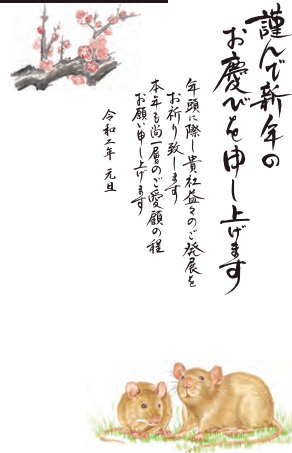 謹んで新年の
お慶びを申し上げます
年頭に際し貴社益々のご発展を
お祈り致します
本年も尚一層のご愛顧の程
お願い申し上げます
令和二年 元旦